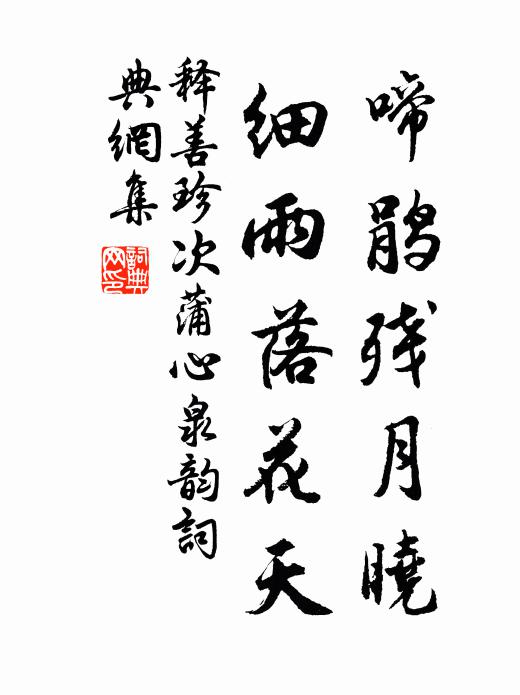 啼鹃残月曉
细雨落花天
释善珍次蒲心泉韵詞
典網集
詞典
网印